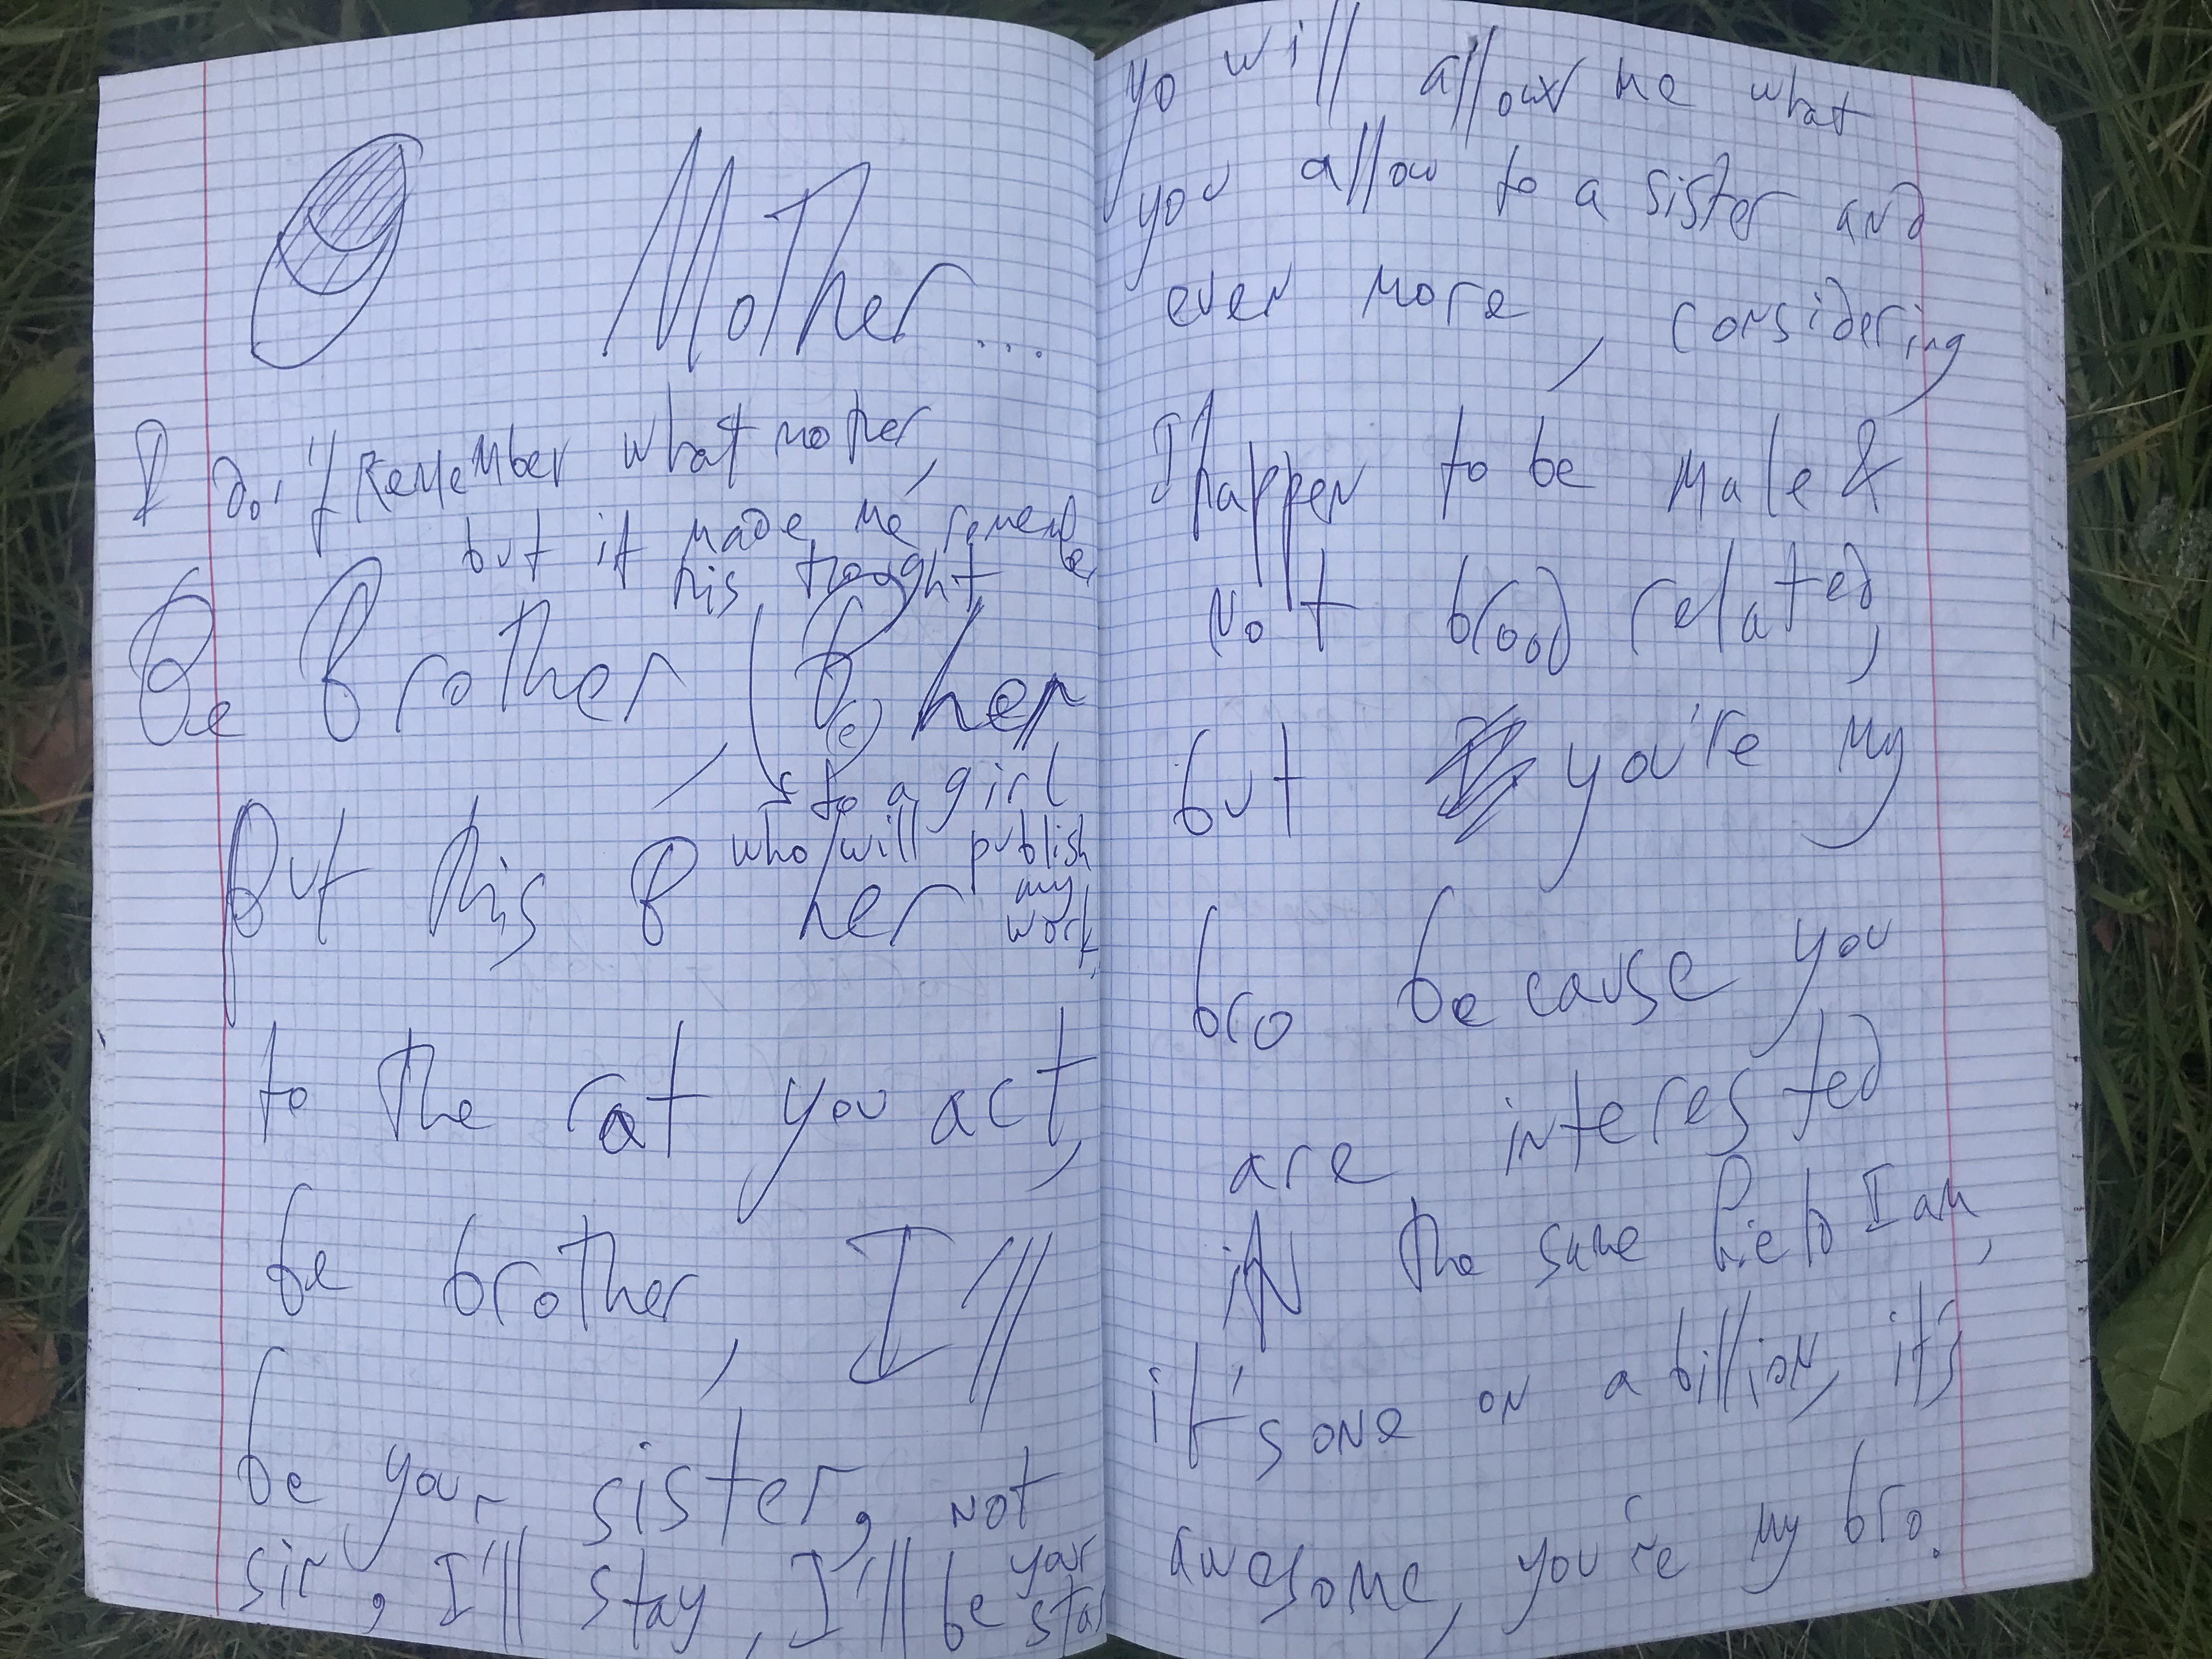 Mother...
I don't remember what mother,
but it made me remember
this thought
Be Brother, Be her
to a girl
who will publish
my
work
But this B her
to the rat you act,
be brother, I'll
be your sister, not
sir, I'll stay, I'll be your
be star
yo will allow me what
you allow to a sister and
even more, considering
I happen to be male &
not blood related,
but you're my
bro because you
are interested
in the same field I am,
it's one on a billion, it's
awesome, you're my bro.